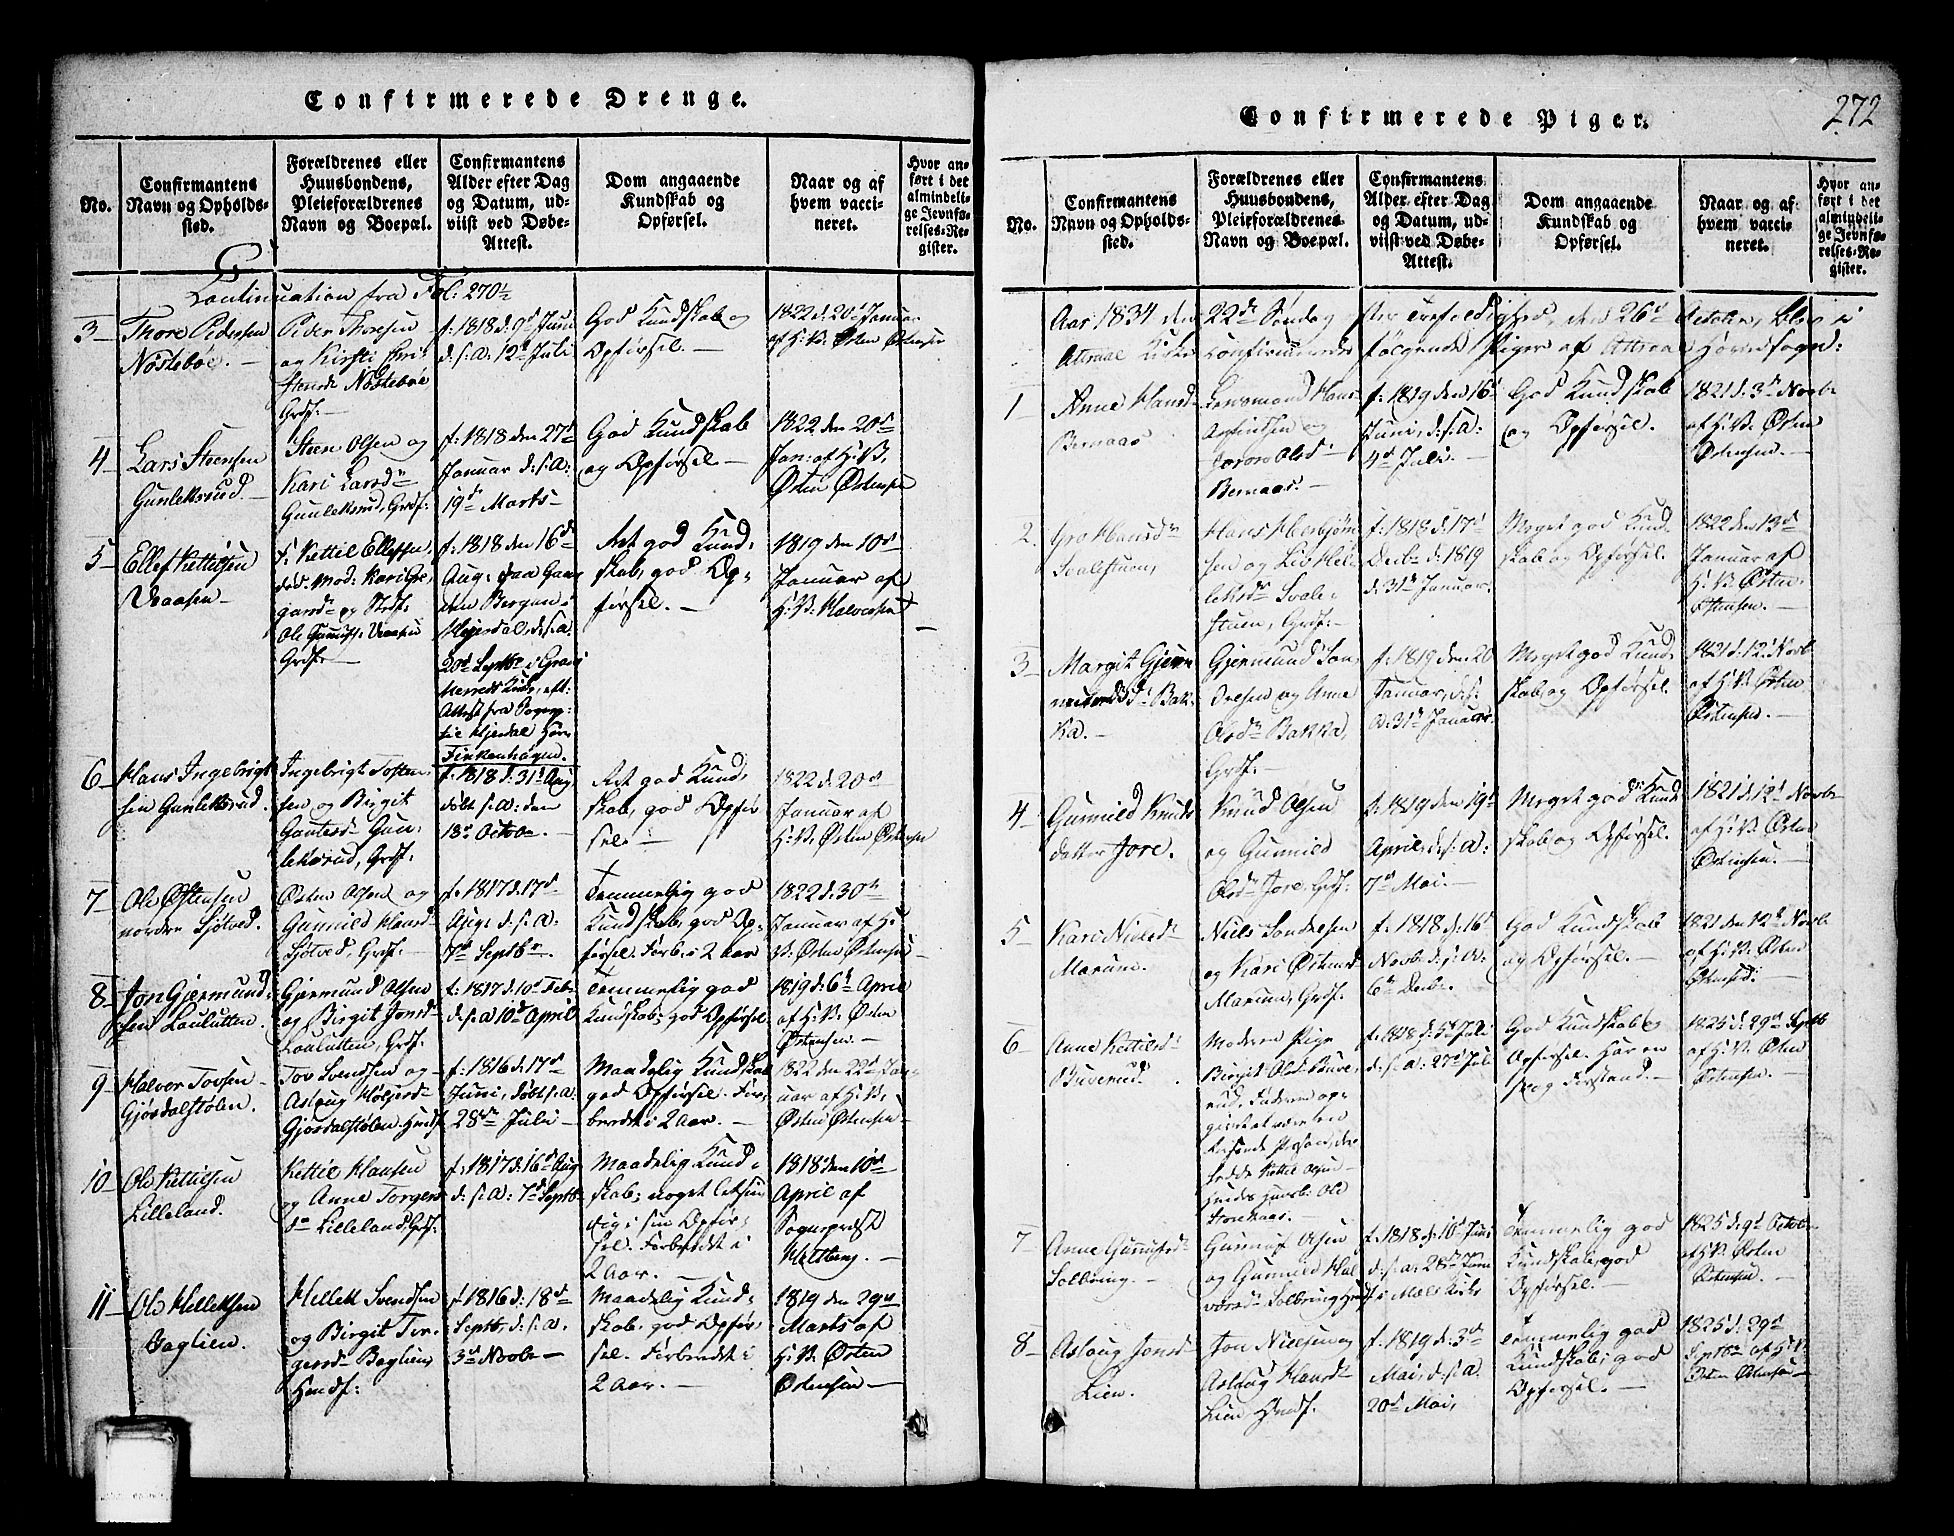 Confirmerede Drenge.
No.
Confirmantens
Navn og Opholds-
sted.
Forældrenes eller
Huusbondens,
Pleieforældrenes
Navn og Boepæl.
Confirmantens
Alder efter Dag
og Datum, ud-
viist ved Døbe-
Attest.
Dom angaaende
Kundskab og
Opførsel.
Naar og af
hvem vacci-
neret.
Hvor an-
ført i det
almindeli-
ge Jevnfø-
relses-Re-
gister.
Continuation fra Fol: 270½
3
Thore Pedersen
Nøsteboe. –
Peder Thoresen
og Kirsti Cri-
stensd Nøsteboe
Grdf: –
f: 1818 d: 9d Juni
d: s: a: 12d Juli
God Kundskab og
Opførsel. –
1822 d: 20d Januar
af H: V: Østen Østensen
4
Lars Steensen
Gunleksrud. –
Steen Olsen og
Kari Larsdn
Gunleksrud, Grdf:
f: 1818 den 27d
Januar d: s: a:
19d Marts –
God Kundskab
og Opførsel. –
1822 den 20d
Jan: af H: V:
Østen Østensen
5
Ellef Kettilsen
Vaasen –
f: Kettil Ellefsen,
Ole Gunufs: Vaasen
Grdf: –
f: 1818 den 16d
Aug: paa Gaar
den Bergan i
Hjerdal, d: s: a:
20d Septbr i Grans
Herreds Kirke, eft:
Attest fra Sogne-
Hjerdal Herr
Finkenhagen.
Ret god Kund-
skab, god Op-
førsel. –
1819 den 10d
Januar af
H: V: Halvorsen
6
Hans Ingebrigt
sen Gunleksrud.
Ingebrigt Tosten-
sen og Birgit
Gautesd Gun-
leksrud, Grdf:
f: 1818 d: 31d Aug
døbt s: a: den
18d Octobr. –
Ret god Kund-
skab, god Opfør-
sel: –
1822 d: 20d
Januar af
H: V: Østen Østensen
7
Ole Østensen
nordre Sjøtved.
Østen Olsen og
Gunnild Hansd
Sjøtved, Grdf: –
f: 1817 d: 17d
Aug: d: s: a:
7d Septbr.
Temmelig god
Kundskab, god Op-
førsel. Forb: i 2 Aar
1822 d: 30te
Januar af H:
V: Østen Østensen –
8
Jon Gjermund-
sen Loulutten.
Gjermund Olsen
og Birgit Jonsd
Loulutten, Grdf:
f: 1817 d: 10d Febr
d: s: a 10d April
Temmelig god
Kundskab; god Opførsel
1819 d: 6d April
af H: V: Østen
Østensen. –
9
Halvor Tovsen
Gjøsdalstølen.
Tov Svendsen og
Aslaug Holjersd
Gjøsdalstølen Huusf
f: 1816 d: 17d
Juni, døbt s: a:
28de Juli –
Maadelig Kundskab
god Opførsel. For-
beredt i 2 Aar. –
1822 den 22d Jan-
uar af H: V:
Østen Østensen –
10
Ole Kettilsen
Lilleland.
Kettil Hansen
og Anne Torgers
dn Lilleland Grdf:
f: 1817 d: 16d Aug
d: s: a: 7d Septb
Maadelig Kund-
skab; noget letsin-
dig i sin Opfør-
sel. Forberedt i
2 Aar.
1818 den 10d
April af
Sognepræst
Heltberg. –
11
Ole Helleksen
Boglien.
Hellek Svendsen
og Birgit Tor-
gersdn Boglien,
Huusf:
f: 1816 d: 18d
Septb, d: s: a:
3d Novbr –
Maadelig Kund-
skab, god Opfør-
sel. Forberedt i
2 Aar. –
1819 den 29d
Marts af
H: V: Østen
Østensen –
Confirmerede Piger.
272
No.
Confirmantens
Navn og Opholds-
sted.
Forældrenes eller
Huusbondens,
Pleieforældrenes
Navn og Boepæl.
Confirmantens
Alder efter Dag
og Datum, ud-
viist ved Døbe-
Attest.
Dom angaaende
Kundskab og
Opførsel.
Naar og af
hvem vacci-
neret.
Hvor an-
ført i det
almindeli-
ge Jevnfø-
relses-Re-
gister.
Aar 1834 den 22de Søndag efter Trefoldighed, den 26d October, blev i
Attraae Kirke confirmerede følgende Piger af Attraa Hovedsogn:
1
Anne Hansdn
Bernaas
Lensmand Hans
Joron Olsd
Bernaas. –
f: 1819 den 16d
Juni, d: s: a:
4d Juli. –
God Kundskab
og Opførsel. –
1821 d: 3d Novbr
af H: V: Østen
Østensen. –
2.
Gro Hansdn
Svalestuen,
Hans Herbjørn
sen og Liv Hel-
leksdn Svale-
stuen, Grdf: –
f: 1818 d: 17d
Decbr d: 1819
d: 31d Januar.
Meget god Kund-
skab og Opførsel.
1822 den 13d
Januar af
H: V: Østen
Østensen. –
3
Margit Gjer-
mundsdn Bak-
ka. –
Gjermund Son-
dresen og Anne
Olsdn Bakka,
Grdf: –
f: 1819 den 20
Januar, d: s:
a: 31d Januar.
Meget god Kund-
skab og Opførsel.
1821 d: 12d Novb
af H: V: Østen
Østensen. –
4
Gunnild Knuds
datter Jore.
Knud Olsen
og Gunnild
Olsdn Jore, Grdf:
f: 1819 den 19d
April, d: s: a:
7d Mai. –
Meget god Kund-
skab og Opførsel.
1821 d: 12d Novbr
af H: V: Østen
Østensen. –
5
Kari Nielsdn
Marum.
Niels Sondresen
og Kari Østensd
Marum, Grdf.
f: 1818 d: 16d
Novbr d: s: a:
6d Decbr.
God Kundskab
og Opførsel. –
1821 den 12d Novbr
af H: V: Østen
Østensen:
6
Anne Kettilsdn
Buverud.
Moderen Pige
Birgit Olsd Buve-
rud. Faderen op-
givet at være en
Reisende Person, ved
Navn Kettil Olsen
f: 1818 d: 5d Juli
d: s: a: 27d Juli
God Kundskab og
Opførsel. Har en
svag Forstand. –
1825 d: 29d Septb
af H: V: Østen
Østensen. –
7
Anne Gunnufsdn
Solbring. –
Gunnuf Olsen
og Gunnild Hal
vorsdn Solbring Huusf
f: 1818 d: 10d Juni
d: s: a: 28de Juni
i Mæls Kirke
Temmelig god
Kundskab, god
Opførsel. –
1825 d: 9d Octobr
af H: V: Østen
Østensen. –
8
Aslaug Jonsd
Lien.
Jon Nielsen og
Aslaug Hansdn
Lien Huusf.
f: 1819 d: 3d
Mai, d: s: a:
20d Mai,
Temmelig god
Kundskab, god
Opførsel. –
1825 d: 29d
Septbr af H: V:
Østen Østensen –